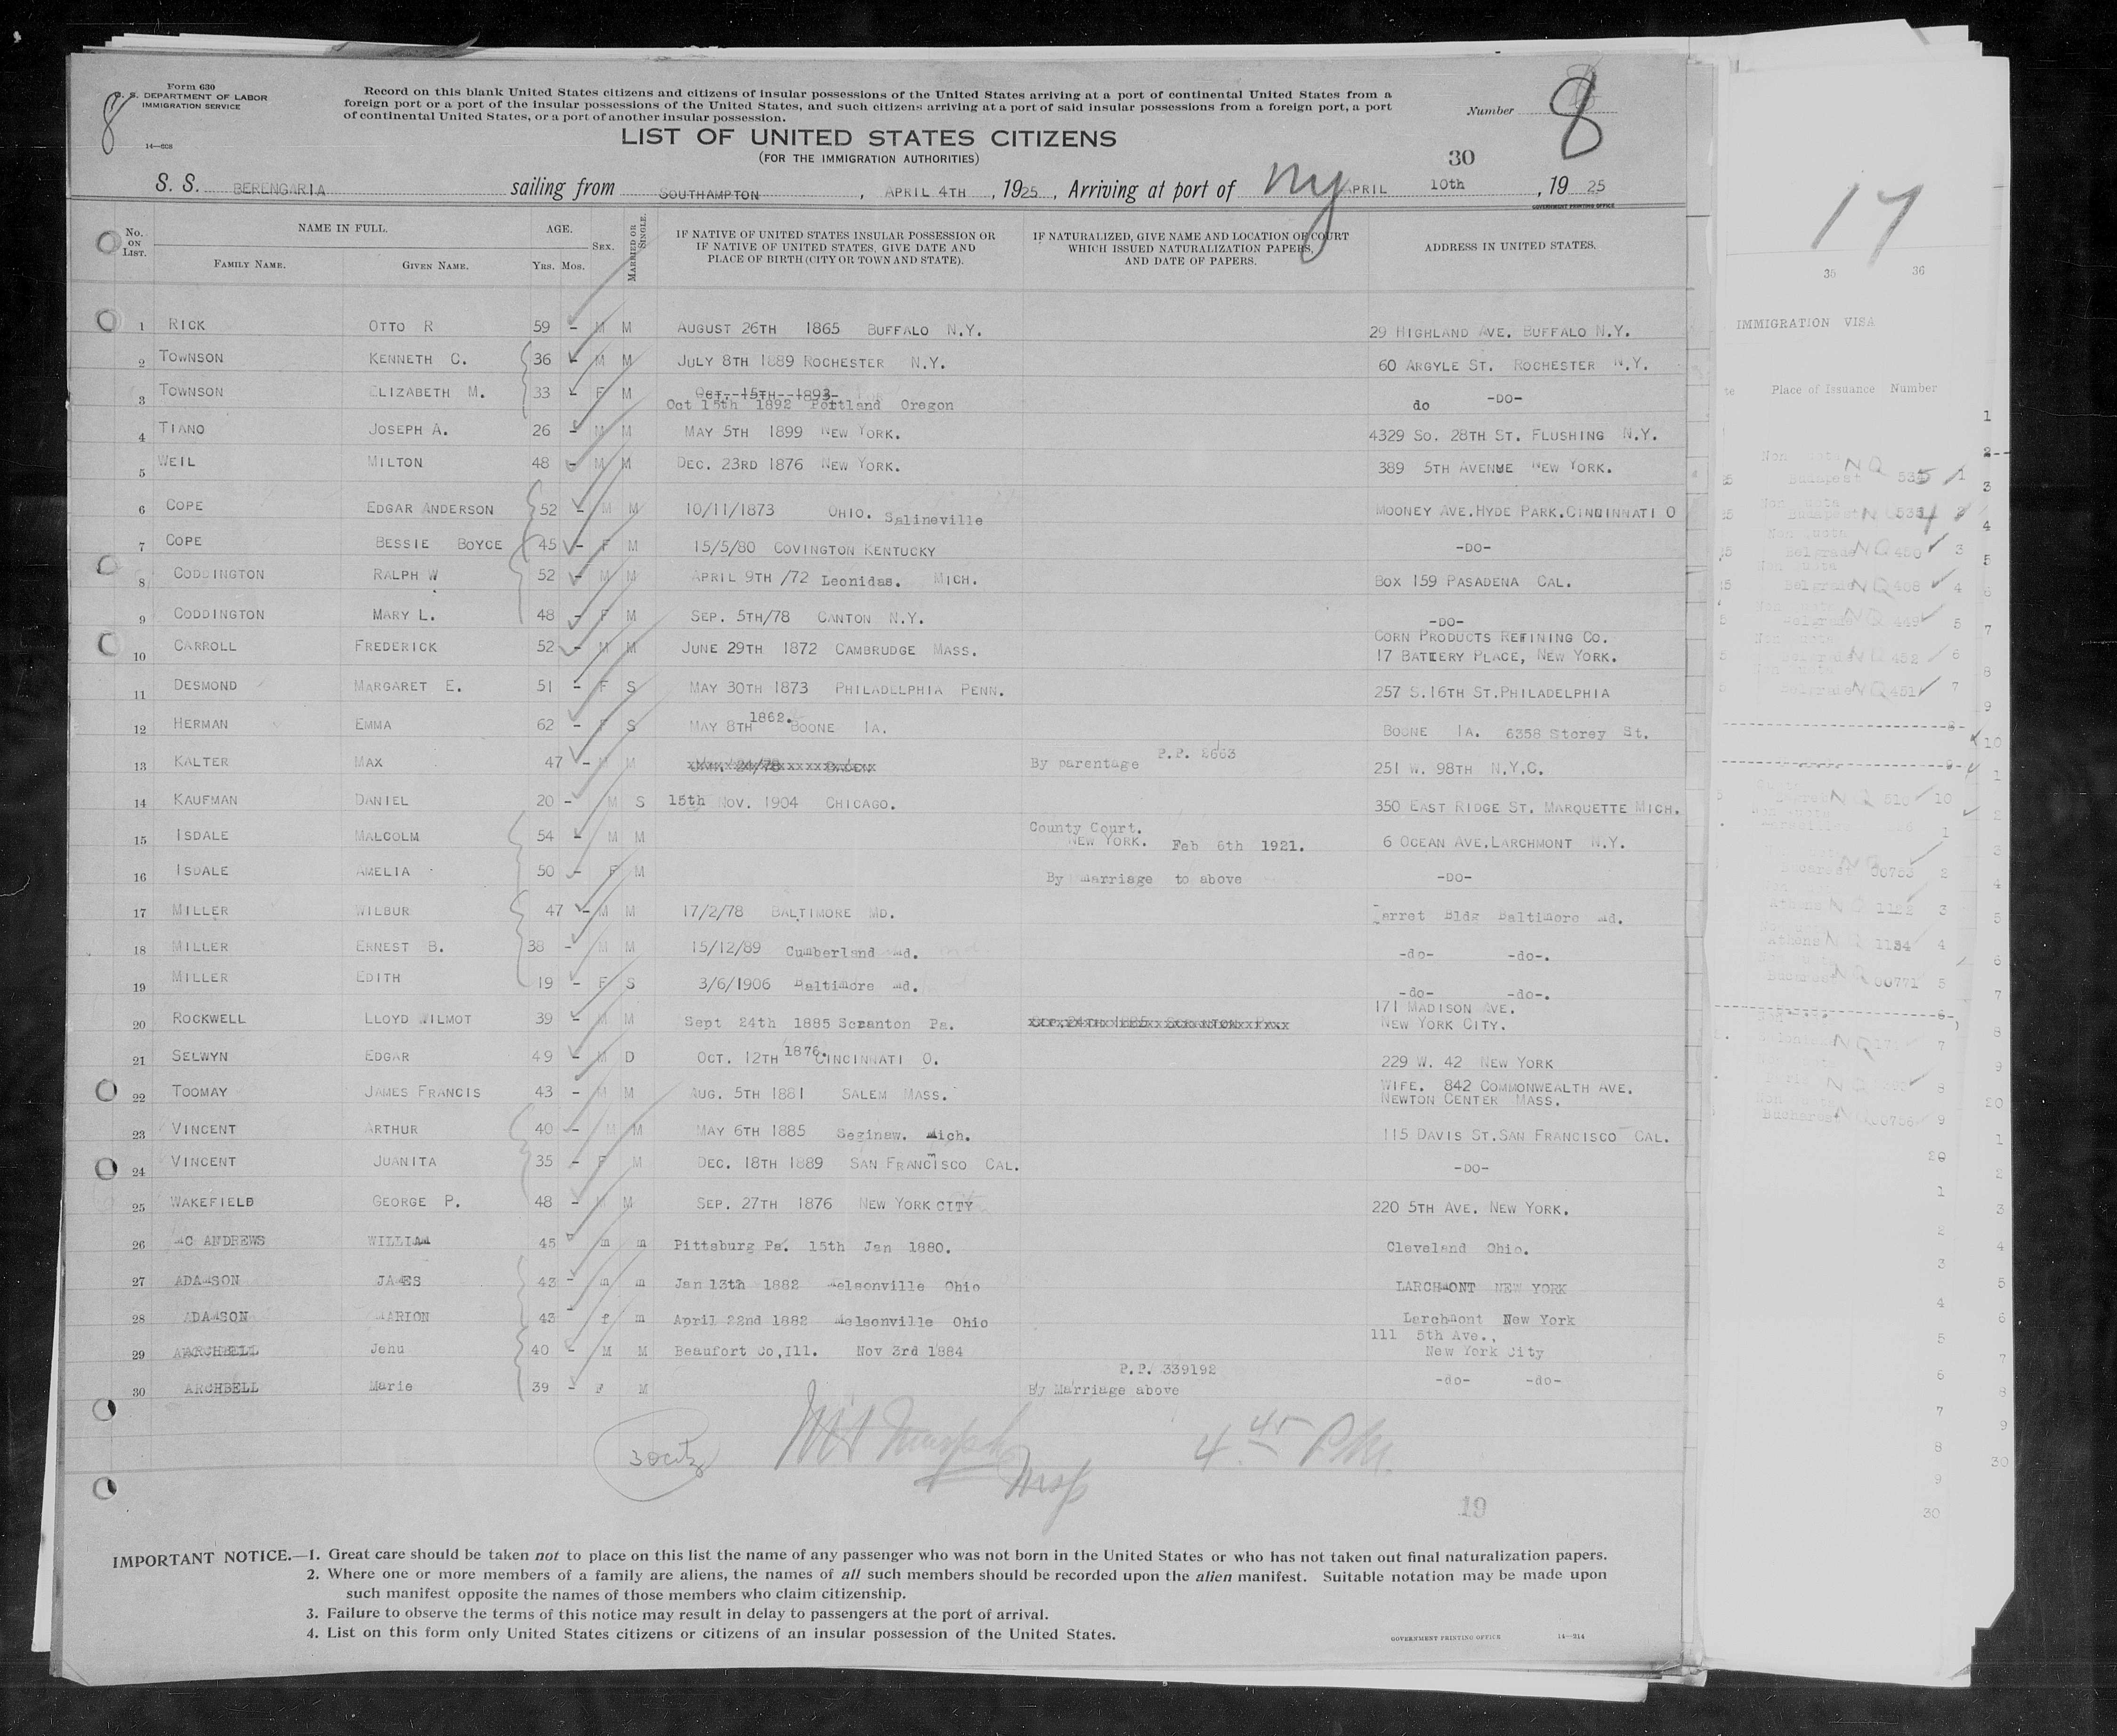 Form 630
U. S. DEPARTMENT OF LABOR
IMMIGRATION SERVICE
8
14—608
Record on this blank United States citizens and citizens of insular possessions of the United States arriving at a port of continental United States from a
foreign port or a port of the insular possessions of the United States, and such citizens arriving at a port of said insular possessions from a foreign port, a port
of continental United States, or a port of another insular possession.
Number 8
LIST OF UNITED STATES CITIZENS
(FOR THE IMMIGRATION AUTHORITIES)
30
S. S. BERENGARIA sailing from SOUTHAMPTON, APRIL 4TH, 1925, Arriving at port of NY APRIL 10th, 1925
GOVERNMENT PRINTING OFFICE
No. ON LIST. NAME IN FULL. FAMILY NAME. GIVEN NAME. AGE. YRS. MOS. SEX. MARRIED OR SINGLE. IF NATIVE OF UNITED STATES INSULAR POSSESSION OR IF NATIVE OF UNITED STATES, GIVE DATE AND PLACE OF BIRTH (CITY OR TOWN AND STATE). IF NATURALIZED, GIVE NAME AND LOCATION OF COURT WHICH ISSUED NATURALIZATION PAPERS, AND DATE OF PAPERS. ADDRESS IN UNITED STATES.
1 RICK OTTO R 59 - M M AUGUST 26TH 1865 BUFFALO N.Y. 29 HIGHLAND AVE. BUFFALO N.Y.
2 TOWNSON KENNETH C. 36 - M M JULY 8TH 1889 ROCHESTER N.Y. 60 ARGYLE ST. ROCHESTER N.Y.
3 TOWNSON ELIZABETH M. 33 - F M OCT. 15TH 1893
Oct 15th 1892 Portland Oregon do -DO-
4 TIANO JOSEPH A. 26 - M M MAY 5TH 1899 NEW YORK. 4329 SO. 28TH ST. FLUSHING N.Y.
5 WEIL MILTON 48 - M M DEC. 23RD 1876 NEW YORK. 389 5TH AVENUE NEW YORK.
6 COPE EDGAR ANDERSON 52 - M M 10/11/1873 OHIO. Salineville MOONEY AVE.HYDE PARK.CINCINNATI O
7 COPE BESSIE BOYCE 45 - F M 15/5/80 COVINGTON KENTUCKY -DO-
8 CODDINGTON RALPH W 52 - M M APRIL 9TH /72 Leonidas. MICH. BOX 159 PASADENA CAL.
9 CODDINGTON MARY L. 48 - F M SEP. 5TH/78 CANTON N.Y. -DO-
10 CARROLL FREDERICK 52 - M M JUNE 29TH 1872 CAMBRUDGE MASS. CORN PRODUCTS REFINING CO.
17 BATTERY PLACE, NEW YORK.
11 DESMOND MARGARET E. 51 - F S MAY 30TH 1873 PHILADELPHIA PENN. 257 S.16TH ST.PHILADELPHIA
12 HERMAN EMMA 62 - F S MAY 8TH 1862. BOONE IA. BOONE IA. 6358 Storey St.
13 KALTER MAX 47 - M M By parentage P.P. 2663 251 W. 98TH N.Y.C.
14 KAUFMAN DANIEL 20 - M S 15th NOV. 1904 CHICAGO. 350 EAST RIDGE ST. MARQUETTE MICH.
15 ISDALE MALCOLM 54 - M M County Court.
NEW YORK. Feb 6th 1921. 6 OCEAN AVE.LARCHMONT N.Y.
16 ISDALE AMELIA 50 - F M By Marriage to above -DO-
17 MILLER WILBUR 47 - M M 17/2/78 BALTIMORE MD. Garret Bldg Baltimore Md.
18 MILLER ERNEST B. 38 - M M 15/12/89 Cumberland Md. -do- -do-.
19 MILLER EDITH 19 - F S 3/6/1906 Baltimore Md. -do- -do-.
20 ROCKWELL LLOYD WILMOT 39 - M M Sept 24th 1885 Scranton Pa. 171 MADISON AVE.
NEW YORK CITY.
21 SELWYN EDGAR 49 - M D OCT. 12TH 1876. CINCINNATI O. 229 W. 42 NEW YORK
22 TOOMAY JAMES FRANCIS 43 - M M AUG. 5TH 1881 SALEM MASS. WIFE. 842 COMMONWEALTH AVE.
NEWTON CENTER MASS.
23 VINCENT ARTHUR 40 - M M MAY 6TH 1885 Seginaw. Mich. 115 DAVIS ST.SAN FRANCISCO CAL.
24 VINCENT JUANITA 35 - F M DEC. 18TH 1889 SAN FRANCISCO CAL. -DO-
25 WAKEFIELD GEORGE P. 48 - M M SEP. 27TH 1876 NEW YORK CITY 220 5TH AVE. NEW YORK.
26 MC ANDREWS WILLIAM 45 m m Pittsburg Pa. 15th Jan 1880. Cleveland Ohio.
27 ADAMSON JAMES 43 - m m Jan 13th 1882 Nelsonville Ohio LARCHMONT NEW YORK
28 ADAMSON MARION 43 - f m April 22nd 1882 Nelsonville Ohio Larchmont New York
29 ARCHBELL Jehu 40 - M M Beaufort Co,Ill. Nov 3rd 1884 111 5th Ave.,
New York City
30 ARCHBELL Marie 39 - F M P.P. 339192
By Marriage above -do- -do-
30 citz
4 45 P.M.
19
IMPORTANT NOTICE.—1. Great care should be taken not to place on this list the name of any passenger who was not born in the United States or who has not taken out final naturalization papers.
2. Where one or more members of a family are aliens, the names of all such members should be recorded upon the alien manifest. Suitable notation may be made upon
such manifest opposite the names of those members who claim citizenship.
3. Failure to observe the terms of this notice may result in delay to passengers at the port of arrival.
4. List on this form only United States citizens or citizens of an insular possession of the United States.
GOVERNMENT PRINTING OFFICE 14—214
17
35 36
IMMIGRATION VISA
Place of Issuance Number